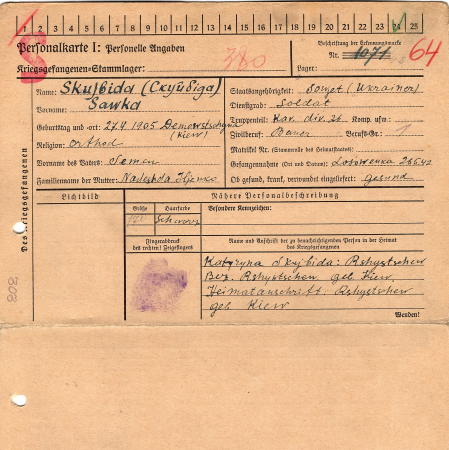 1 2 3 4 5 6 7 8 9 10 11 12 13 14 15 16 17 18 19 20 21 22 23 24 25
Personalkarte I: Personelle Angaben
Kriegsgefangenen-Stammlager:
380
Beschriftung der Erkennungsmarke
Nr. 1071 64
Lager:
Des Kriegsgefangenen
Name: Skujbida (Скуйбіда)
Vorname: Sawka
Geburtstag und -ort: 27.4 1905
(Kiew)
Religion: orthod
Vorname des Vaters: Semen
Familienname der Mutter: Nadeshda
Staatsangehörigkeit: Sowjet (Ukrainer)
Dienstgrad: Soldat
Truppenteil: Kav. div. 26 Komp. usw.:
Zivilberuf: Bauer Berufs-Gr.: 1
Matrikel Nr. (Stammrolle des Heimatstaates):
Gefangennahme (Ort und Datum): Losowenka
Ob gesund, krank, verwundet eingeliefert: gesund
Lichtbild
Nähere Personalbeschreibung
Größe
Haarfarbe
Schwarz
Besondere Kennzeichen:
Fingerabdruck
des rechten! Zeigefingers
Name und Anschrift der zu benachrichtigenden Person in der Heimat
des Kriegsgefangenen
Kateryna Skujbida: Rshyschew
Bez. Rshyschew geb Kiew
Heimatanschrift: Rshyschew
geb Kiew
Wenden!